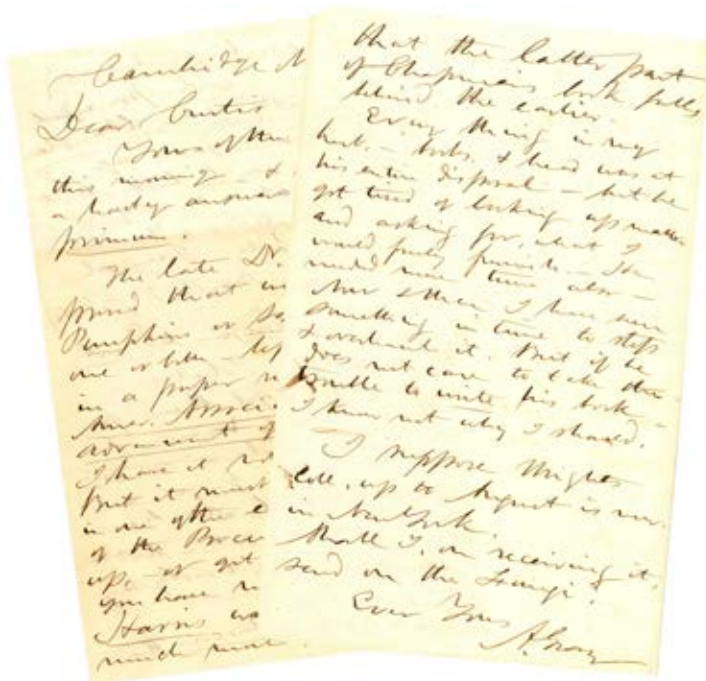 Cambridge
Dear Curtis
Yours of the
this morning - &
a hasty answer
primum.
The late Dr.
proved that
Pumpkins or
one or both
in a paper
Amer. Associ
advancement of
I have it
But it must
in one of the
of the Procee
up, - or get
you have
Harris
much more
that the latter part
of Chapman's book falls
behind the earlier.
Every thing in my
herb. - books, & head was at
his entire disposal - but he
got tired of looking up matter
and asking for, what I
would freely furnish. - He
needed more time also -
Now & then I have seen
something in time to stop
& overhaul it. But if he
does not care to take the
trouble to write his book -
I know not why I should.
I suppose Wright's
coll. up to August is now
in New York.
Shall I, on receiving it,
send on the Fungi?
Ever Yours
A. Gray